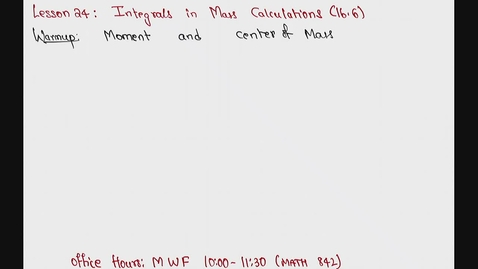 Lesson 24: Integrals in Mass Calculations (16.6)
Warmup: Moment and center of Mass
office Hours: M W F 10:00 - 11:30 (MATH 842)